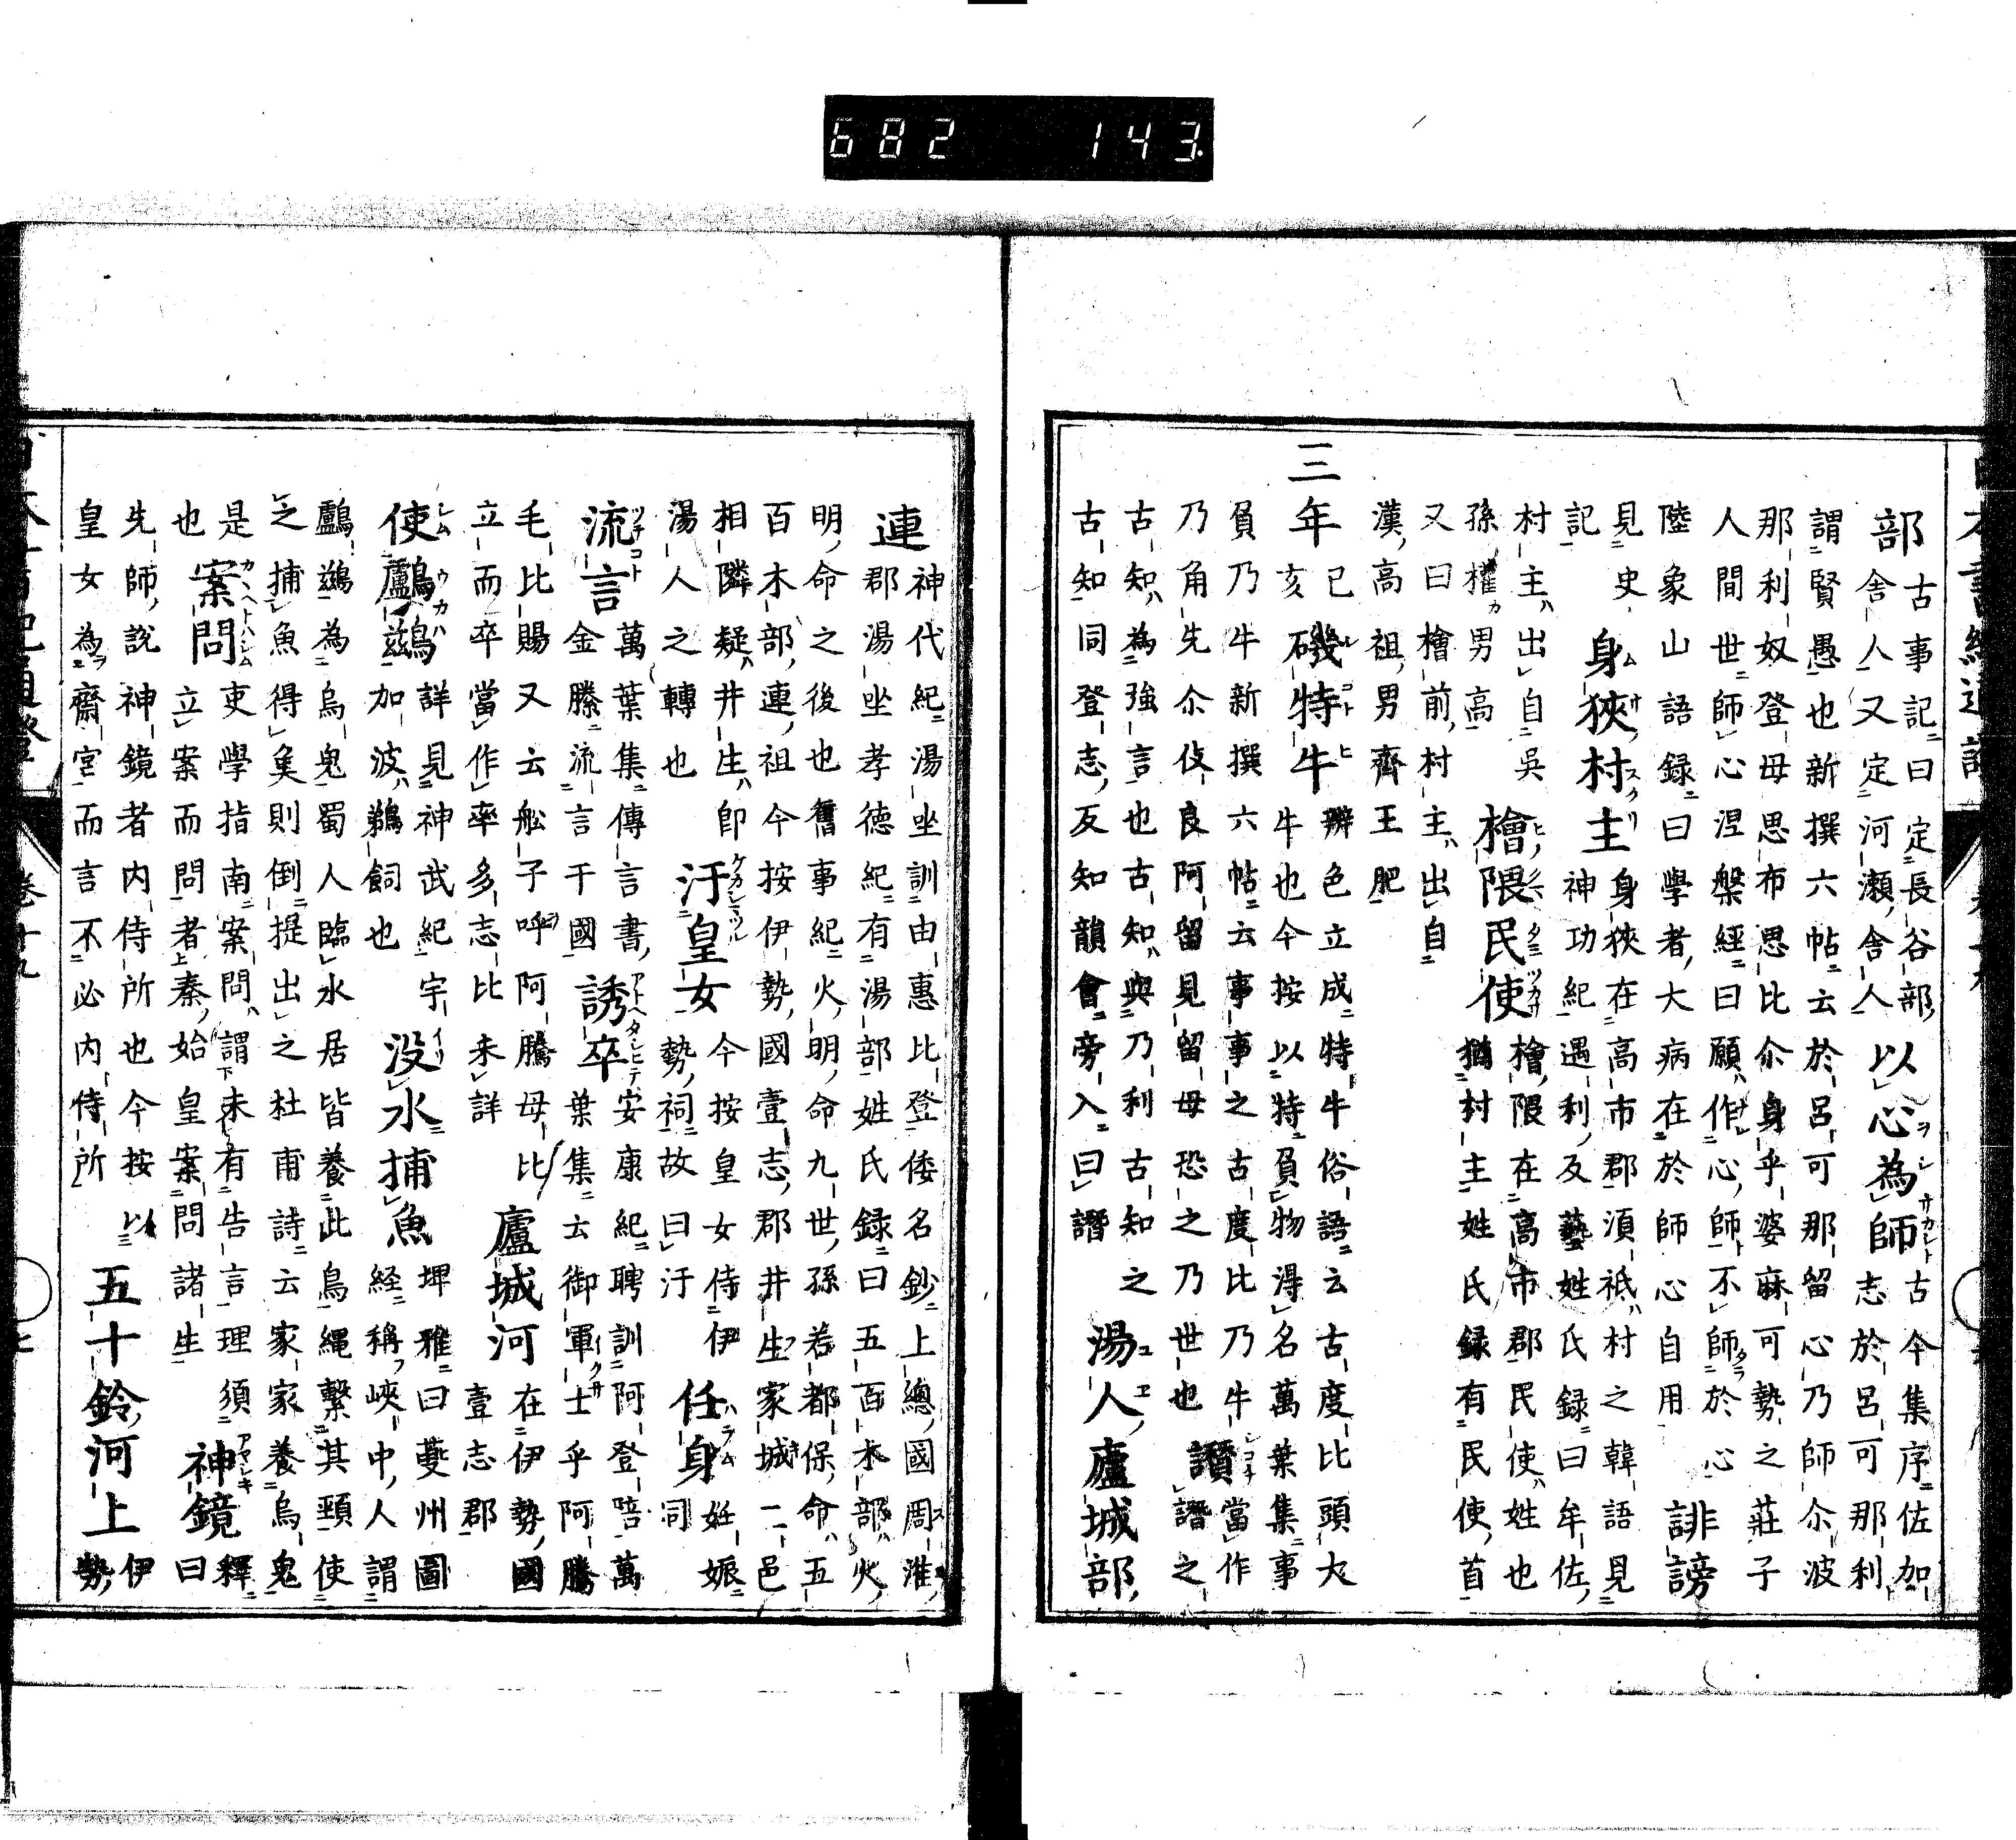 682 143.
部古事記曰定長谷部、以心為師古今集序佐加
舎人又定河瀬舎人志於呂可那利
謂賢愚也新撰六帖云於呂可那留心乃師尒波
那利奴登毋思布思比尒身乎婆麻可勢之莊子
人間世師心涅槃經曰願作心師不師於心誹謗
陸象山語録曰學者大病在於師心自用
見史身狹村主身狹在高市郡湏祇村之韓語見
記神功紀遇利及藝姓氏録曰牟佐
村主出自吳檜隈民使檜隈在高市郡民使姓也
孫權男高猶村主姓氏録有民使首
又曰檜前村主出自
漢高祖男齊王肥
三年己亥磯特牛辨色立成特牛俗語云古度比頭大
牛也今按以特負物得名萬葉集事
負乃牛新撰六帖云事事之古度比乃牛讃當作
乃角先尒伎良阿留見留毋恐之乃世也譖之
古知為強言也古知與乃利古知之湯人廬城部
古知同登志反知韻會旁入曰譖
連神代紀湯坐訓由惠比登倭名鈔上總國周淮
郡湯坐孝徳紀有湯部姓氏録曰五百木部火
明命之後也舊事紀火明命九世孫若都保命五
百木部連祖今按伊勢國壹志郡井生家城二邑
相隣疑井生即汙皇女今按皇女侍伊任身妊娠
湯人之轉也勢祠故曰汙同
流言萬葉集傳言書誘卒安康紀聘訓阿登誂萬
金縢流言于國葉集云御軍士乎阿騰
毛比賜又云舩子呼阿騰母比廬城河在伊勢國
立而卒當作率多志比未詳壹志郡
使鸕鷀詳見神武紀宇没水捕魚埤雅曰蘷州圖
加波鵜飼也経稱峽中人謂
鸕鷀為烏鬼蜀人臨水居皆養此鳥繩繫其頸使
之捕魚得魚則倒提出之杜甫詩云家家養烏鬼
是案問吏學指南案問謂未有告言理須神鏡釋
也立案而問者秦始皇案問諸生曰
先師説神鏡者内侍所也今按以五十鈴河上伊
皇女為齋宮而言不必内侍所勢